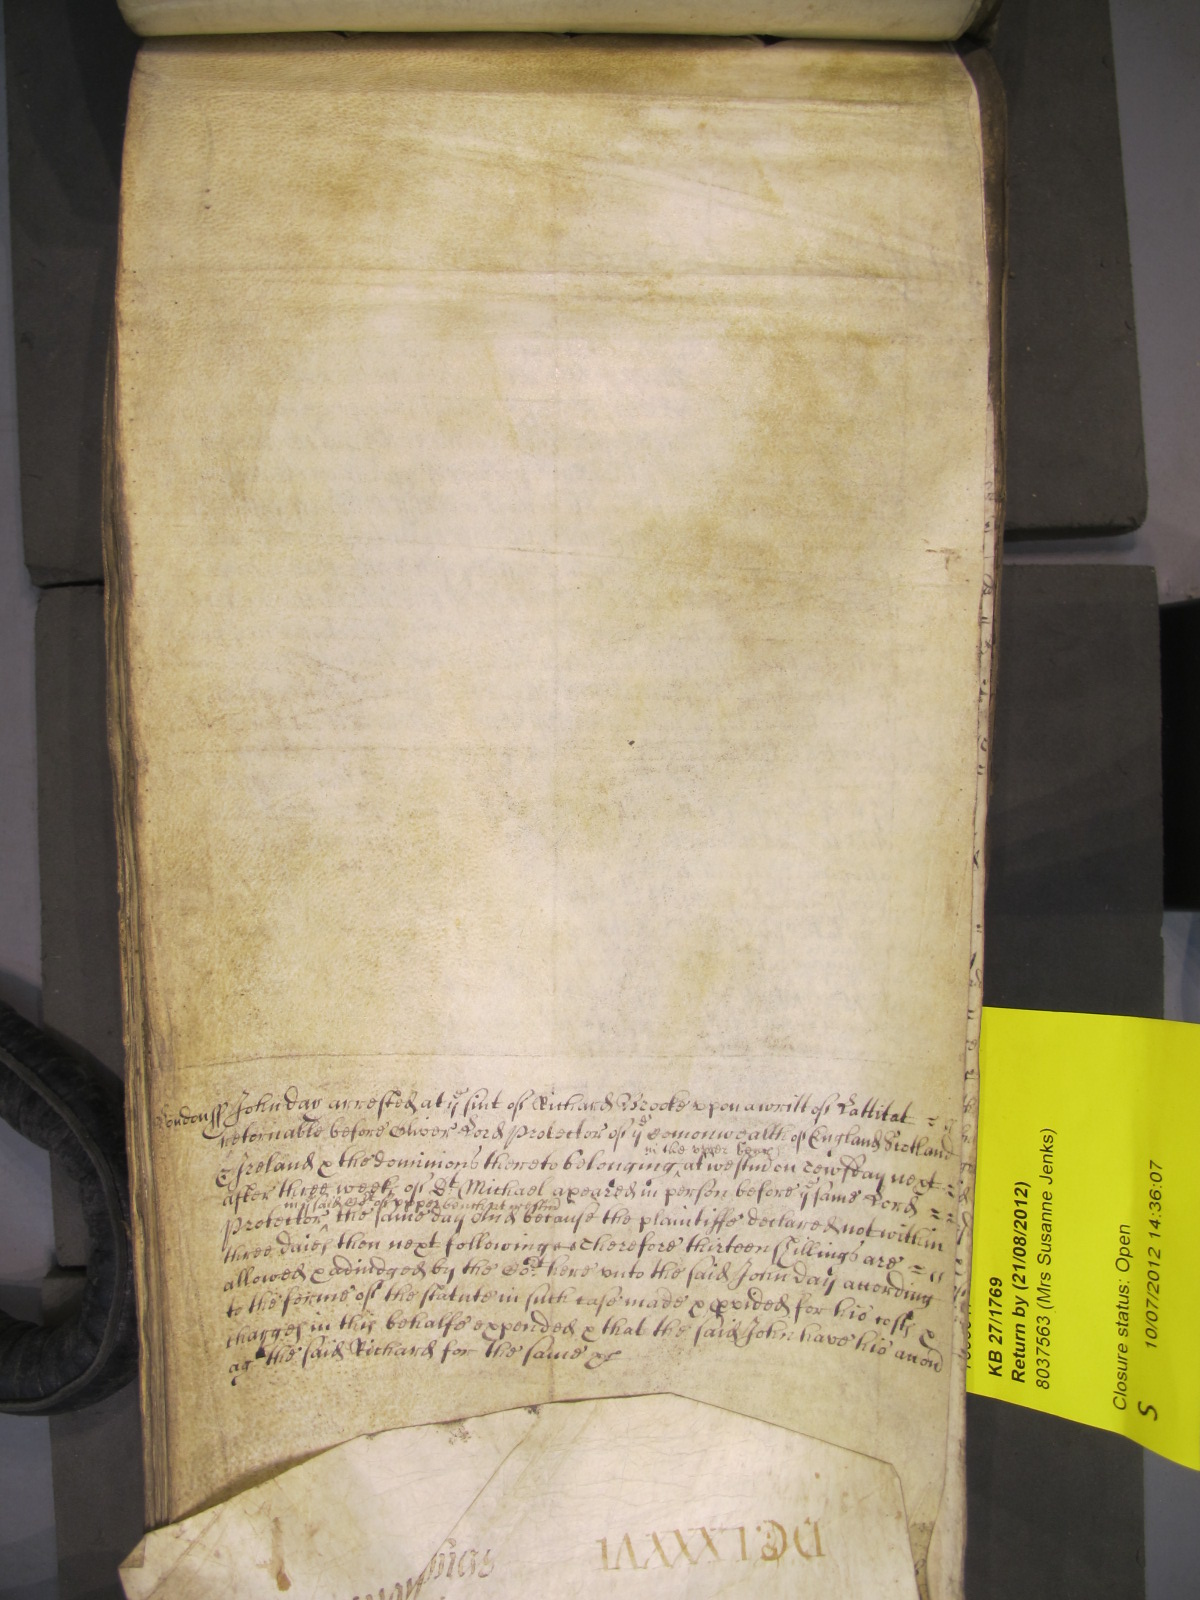 London ss John day arrested at ye suit of Richard Brooke upon a writt of Lattitat =
retornable before Oliver Lord Protector of ye Comonwealth of England Scotland
in the upper bench
& Ireland & the dominions thereto belonging at westm on tewsday next =
after three weeks of St Michael apeared in person before ye same Lord =
in ye said Cort of upper bench at westmr
Protector the same day And because the plaintiffe declared not within
three daies then next following Therefore thirteen shillings are =
allowed & adiudged by the Cort here unto the said John day according
to the forme of the statute in such case made & pvided for his costs &
charges in this behalfe expended & that the said John have his accon
agt the said Richard for the same &c
DCLXXXVI
KB 27/1769
Return by (21/08/2012)
8037563 (Mrs Susanne Jenks)
Closure status: Open
S 10/07/2012 14:36:07